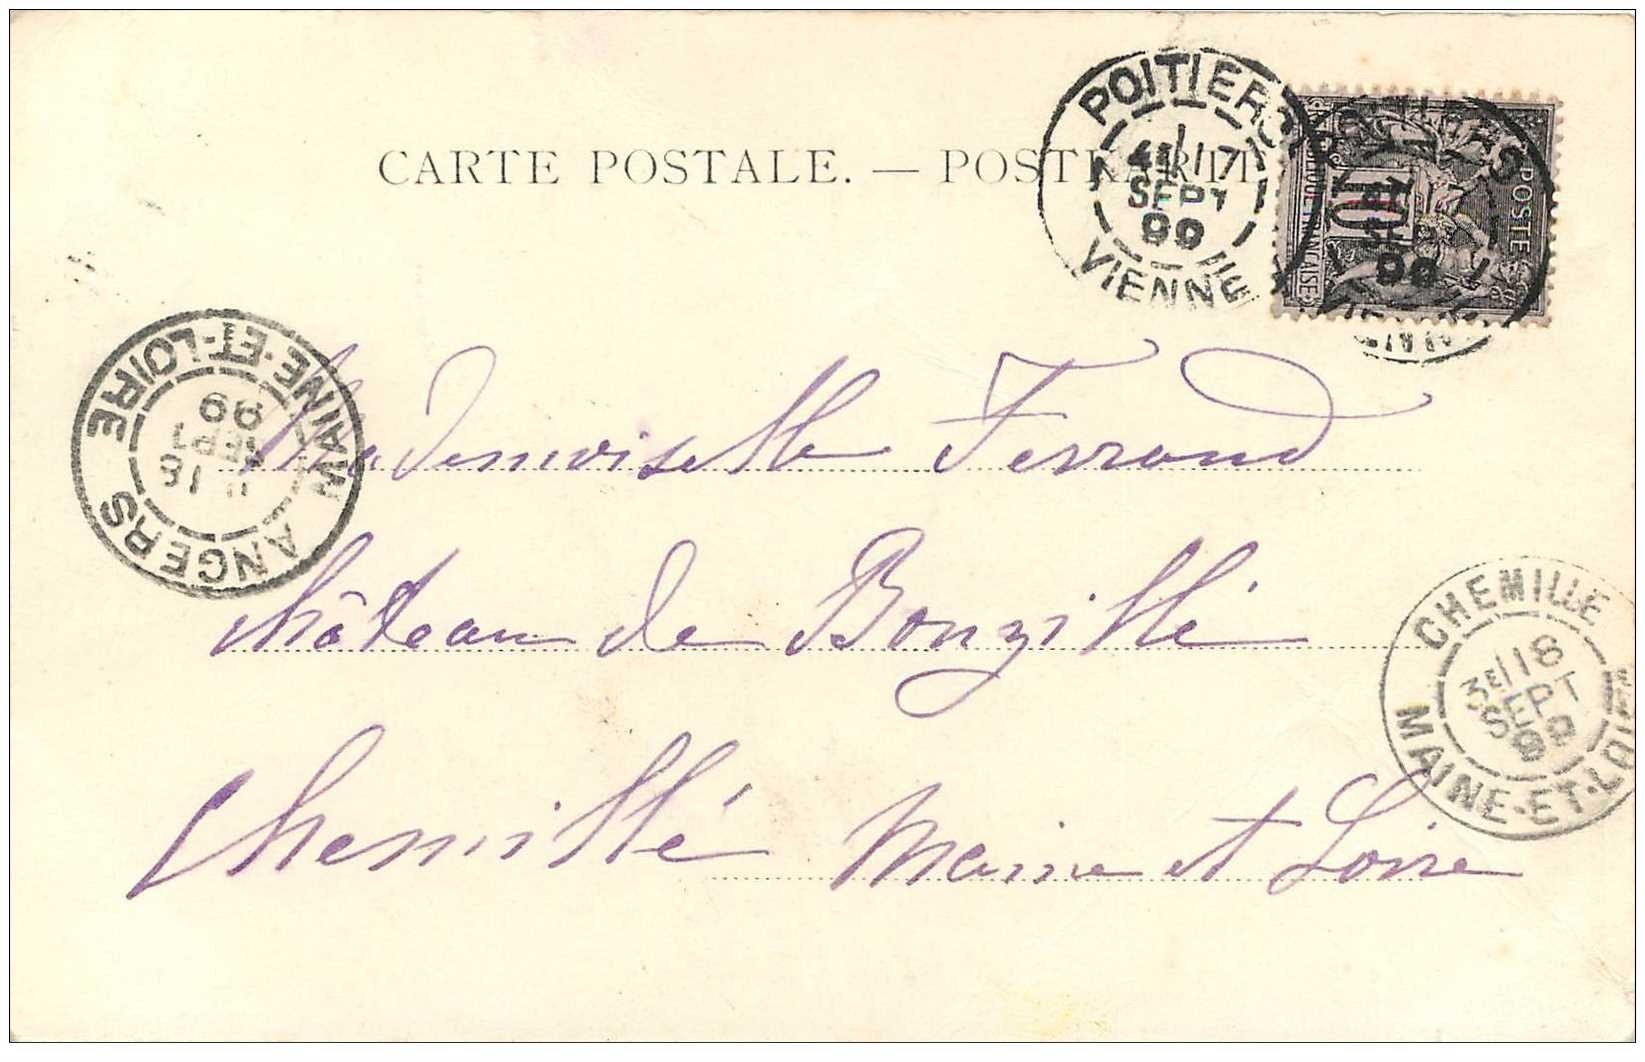 CARTE POSTALE. — POSTKARTE
POITIERS
4E 17
SEPT
99
VIENNE
POITIERS
99
POSTES
10
RÉPUBLIQUE FRANÇAISE
MAINE-ET-LOIRE
18
SEPT
99
ANGERS
Mademoiselle Ferrand
Château de Bonzillé
CHEMILLE
3E 18
SEPT
99
MAINE-ET-LOIRE
Chemillé Maine et Loire